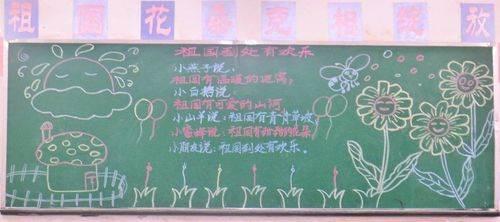 祖国花朵竞相绽放
祖国到处有欢乐
小燕子说，
祖国有温暖的
小白鹅说，
祖国有可爱的山河
小山羊说：祖国有青青草坡，
小蜜蜂说：祖国有的花朵
小朋友说：祖国到处有欢乐。